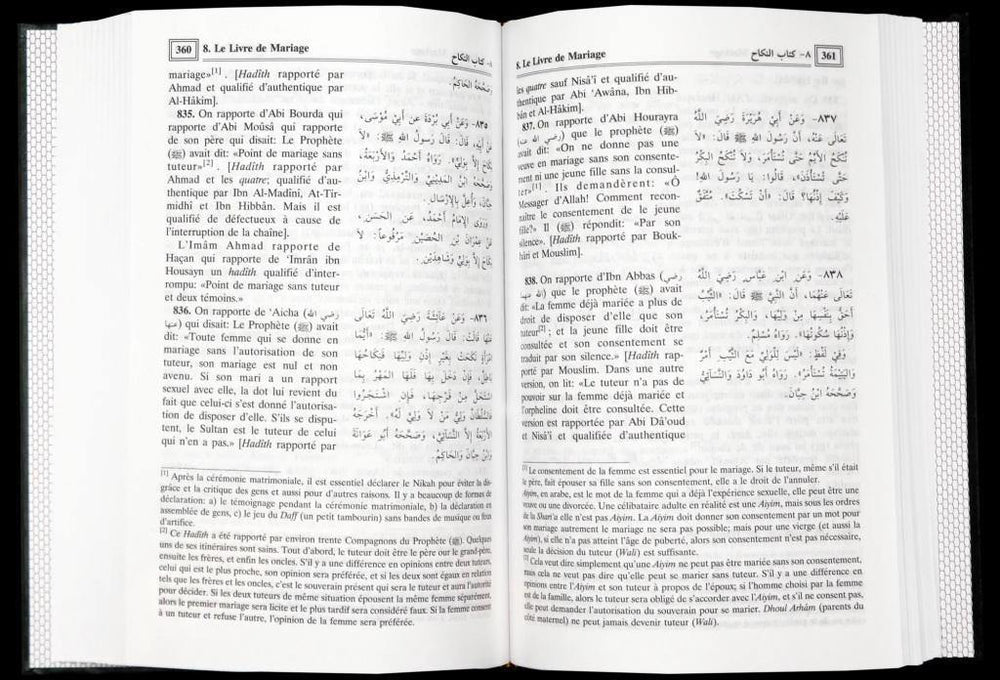 360 8. Le Livre de Mariage
٨- كتاب النكاح
mariage»[1] . [Hadîth rapporté par
Ahmad et qualifié d'authentique par
Al-Hâkim].
835. On rapporte d'Abi Bourda qui
rapporte d'Abi Moûsâ qui rapporte
de son père qui disait: Le Prophète
(ﷺ) avait dit: «Point de mariage sans
tuteur»[2] . [Hadîth rapporté par
Ahmad et les quatre; qualifié d'au-
thentique par Ibn Al-Madînî, At-Tir-
midhî et Ibn Hibbân. Mais il est
qualifié de défectueux à cause de
l'interruption de la chaîne].
L'Imâm Ahmad rapporte de
Haçan qui rapporte de 'Imrân ibn
Housayn un hadîth qualifié d'inter-
rompu: «Point de mariage sans tuteur
et deux témoins.»
836. On rapporte de 'Aicha (رضي الله
عنها) qui disait: Le Prophète (ﷺ) avait
dit: «Toute femme qui se donne en
mariage sans l'autorisation de son
tuteur, son mariage est nul et non
avenu. Si son mari a un rapport
sexuel avec elle, la dot lui revient du
fait que celui-ci s'est donné l'autorisa-
tion de disposer d'elle. S'ils se dispu-
tent, le Sultan est le tuteur de celui
qui n'en a pas.» [Hadîth rapporté par
وَصَحَّحَهُ الْحَاكِمُ.
٨٣٥- وَعَنْ أَبِي بُرْدَةَ عَنْ أَبِي مُوْسَى،
عَنْ أَبِيْهِ، قَالَ: قَالَ رَسُولُ اللهِ ﷺ: «لَا
نِكَاحَ إِلَّا بِوَلِيٍّ». رَوَاهُ أَحْمَدُ وَالْأَرْبَعَةُ،
وَصَحَّحَهُ ابْنُ الْمَدِيْنِيِّ وَالتِّرْمِذِيُّ وَابْنُ
حِبَّانَ، وَأُعِلَّ بِالْإِرْسَالِ.
وَرَوَى الْإِمَامُ أَحْمَدُ، عَنِ الْحَسَنِ،
عَنْ عِمْرَانَ بْنِ الْحُصَيْنِ مَرْفُوعًا: لَا
نِكَاحَ إِلَّا بِوَلِيٍّ وَشَاهِدَيْنِ.
٨٣٦- وَعَنْ عَائِشَةَ رَضِيَ اللَّهُ تَعَالَى
عَنْهَا قَالَتْ: قَالَ رَسُولُ اللهِ ﷺ: «أَيُّمَا
امْرَأَةٍ نَكَحَتْ بِغَيْرِ إِذْنِ وَلِيِّهَا فَنِكَاحُهَا
بَاطِلٌ، فَإِنْ دَخَلَ بِهَا فَلَهَا الْمَهْرُ بِمَا
اسْتَحَلَّ مِنْ فَرْجِهَا، فَإِنِ اشْتَجَرُوا
فَالسُّلْطَانُ وَلِيُّ مَنْ لَا وَلِيَّ لَهُ». أَخْرَجَهُ
الْأَرْبَعَةُ إِلَّا النَّسَائِيَّ، وَصَحَّحَهُ أَبُو عَوَانَةَ
وَابْنُ حِبَّانَ وَالْحَاكِمُ.
[1] Après la cérémonie matrimoniale, il est essentiel déclarer le Nikah pour éviter la dis-
grâce et la critique des gens et aussi pour d'autres raisons. Il y a beaucoup de formes de
déclaration: a) le témoignage pendant la cérémonie matrimoniale, b) la déclaration et
assemblée de gens, c) le jeu du Daff (un petit tambourin) sans bandes de musique ou feux
d'artifice.
[2] Ce Hadîth a été rapporté par environ trente Compagnons du Prophète (ﷺ). Quelques
uns de ses itinéraires sont sains. Tout d'abord, le tuteur doit être le père our le grand-père,
ensuite les frères, et enfin les oncles. S'il y a une différence en opinions entre deux tuteurs,
celui qui est le plus proche, son opinion sera préférée, et si les deux sont égaux en relation
tels que les frères et les oncles, c'est le souverain présent qui sera le tuteur et aura l'autorité
pour décider. Si les deux tuteurs de même situation épousent la même femme séparément,
alors le premier mariage sera licite et le plus tardif sera considéré faux. Si la femme consent
à un tuteur et refuse l'autre, l'opinion de la femme sera préférée.
8. Le Livre de Mariage
٨- كتاب النكاح 361
les quatre sauf Nisâ'î et qualifié d'au-
thentique par Abi 'Awâna, Ibn Hib-
bân et Al-Hâkim].
837. On rapporte d'Abi Hourayra
(رضي الله عنه) que le prophète (ﷺ)
avait dit: «On ne donne pas une
veuve en mariage sans son consente-
ment ni une jeune fille sans la consul-
ter»[1]. Ils demandèrent: «Ô
Messager d'Allah! Comment recon-
naître le consentement de le jeune
fille?» Il (ﷺ) répondit: «Par son
silence». [Hadîth rapporté par Bouk-
hâri et Mouslim].
838. On rapporte d'Ibn Abbas (رضي
الله عنه) que le prophète (ﷺ) avait
dit: «La femme déjà mariée a plus de
droit de disposer d'elle que son
tuteur[2]; et la jeune fille doit être
consultée et son consentement se
traduit par son silence.» [Hadîth rap-
porté par Mouslim. Dans une autre
version, on lit: «Le tuteur n'a pas de
pouvoir sur la femme déjà mariée et
l'orpheline doit être consultée. Cette
version est rapportée par Abi Dâ'oud
et Nisâ'î et qualifiée d'authentique
٨٣٧- وَعَنْ أَبِي هُرَيْرَةَ رَضِيَ اللَّهُ
تَعَالَى عَنْهُ، أَنَّ رَسُولَ اللهِ ﷺ قَالَ: «لَا
تُنْكَحُ الْأَيِّمُ حَتَّى تُسْتَأْمَرَ، وَلَا تُنْكَحُ الْبِكْرُ
حَتَّى تُسْتَأْذَنَ»، قَالُوا: يَا رَسُولَ اللهِ!
وَكَيْفَ إِذْنُهَا؟ قَالَ: «أَنْ تَسْكُتَ». مُتَّفَقٌ
عَلَيْهِ.
٨٣٨- وَعَنِ ابْنِ عَبَّاسٍ رَضِيَ اللَّهُ
تَعَالَى عَنْهُمَا، أَنَّ النَّبِيَّ ﷺ قَالَ: «الثَّيِّبُ
أَحَقُّ بِنَفْسِهَا مِنْ وَلِيِّهَا، وَالْبِكْرُ تُسْتَأْمَرُ،
وَإِذْنُهَا سُكُوتُهَا». رَوَاهُ مُسْلِمٌ.
وَفِي لَفْظٍ: «لَيْسَ لِلْوَلِيِّ مَعَ الثَّيِّبِ أَمْرٌ
وَالْيَتِيمَةُ تُسْتَأْمَرُ». رَوَاهُ أَبُو دَاوُدَ وَالنَّسَائِيُّ
وَصَحَّحَهُ ابْنُ حِبَّانَ.
[1] Le consentement de la femme est essentiel pour le mariage. Si le tuteur, même s'il était
le père, fait épouser sa fille sans son consentement, elle a le droit de l'annuler.
Aiyim, en arabe, est le mot de la femme qui a déjà l'expérience sexuelle, elle peut être une
veuve ou une divorcée. Une célibataire adulte en réalité est une Aiyim, mais sous les ordres
de la Shari'a elle n'est pas Aiyim. La Aiyim doit donner son consentement par un mot pour
son mariage autrement le mariage ne sera pas possible; mais pour une vierge (et aussi la
Aiyim), si elle n'a pas atteint l'âge de puberté, alors son consentement n'est pas nécessaire,
seule la décision du tuteur (Wali) est suffisante.
[2] Cela veut dire simplement qu'une Aiyim ne peut pas être mariée sans son consentement,
mais cela ne veut pas dire qu'elle peut se marier sans tuteur. S'il y a une différence en
opinions entre l'Aiyim et son tuteur à propos de l'époux; si l'homme choisi par la femme
est de la famille, alors le tuteur sera obligé de s'accorder avec l'Aiyim, et s'il ne consent pas,
elle peut demander l'autorisation du souverain pour se marier. Dhoul Arhâm (parents du
côté maternel) ne peut jamais devenir tuteur (Wali).